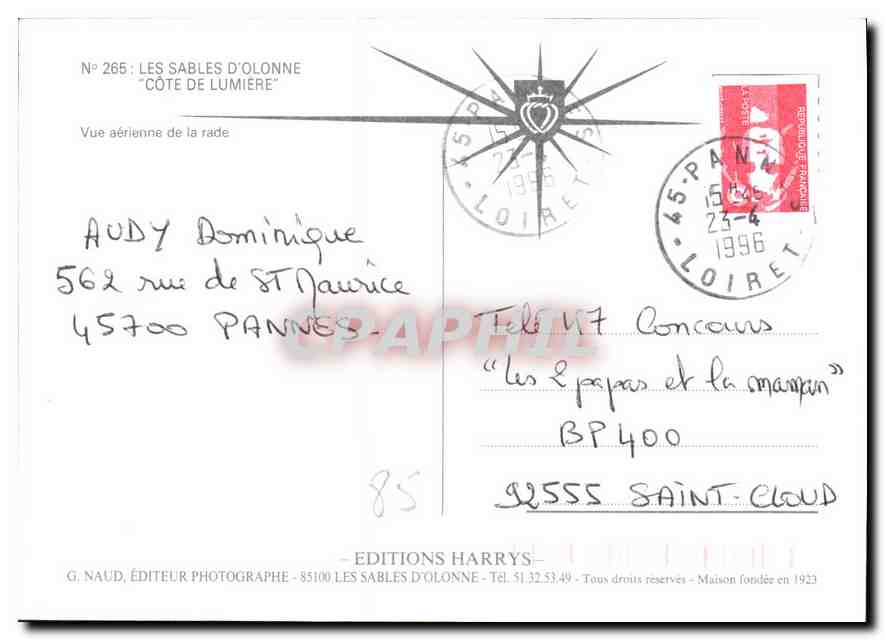 N° 265 : LES SABLES D'OLONNE
"CÔTE DE LUMIÈRE"
Vue aérienne de la rade
45 - PANNES
15
23-4
1996
LOIRET
RÉPUBLIQUE FRANÇAISE
LA POSTE
45 - PANN
15H45
23-4
1996
LOIRET
AUDY Dominique
562 rue de ST Maurice
45700 PANNES
CPAPHIL
Télé N7 Concours
"Les 2 papas et la maman"
BP 400
92555 SAINT-CLOUD
85
– EDITIONS HARRYS –
G. NAUD, ÉDITEUR PHOTOGRAPHE - 85100 LES SABLES D'OLONNE - Tél. 51.32.53.49 - Tous droits réservés - Maison fondée en 1923